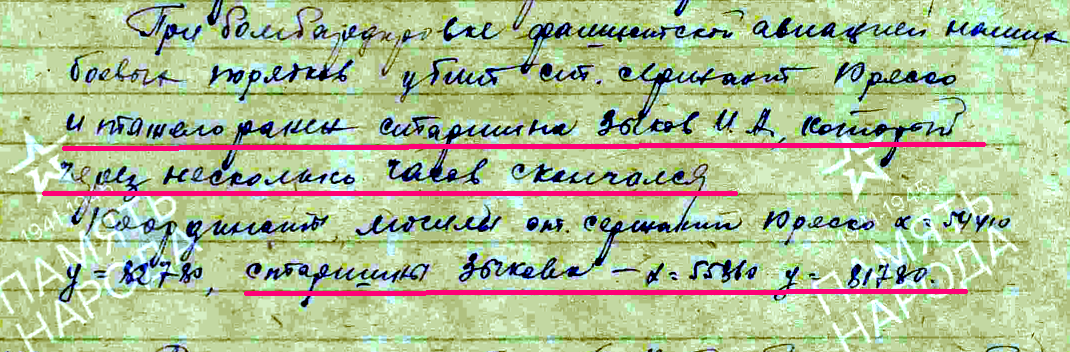 При бомбардировке фашистской авиацией наших
боевых порядков убит ст. сержант Юрессо
и тяжело ранен старшина Зыков И.А., который
через несколько часов скончался
Координаты могилы ст. сержанта Юрессо x = 54410
y = 82780, старшины Зыкова – x = 55360 y = 81780.
1941-1945
ПАМЯТЬ
НАРОДА
1941-1945
ПАМЯТЬ
НАРОДА